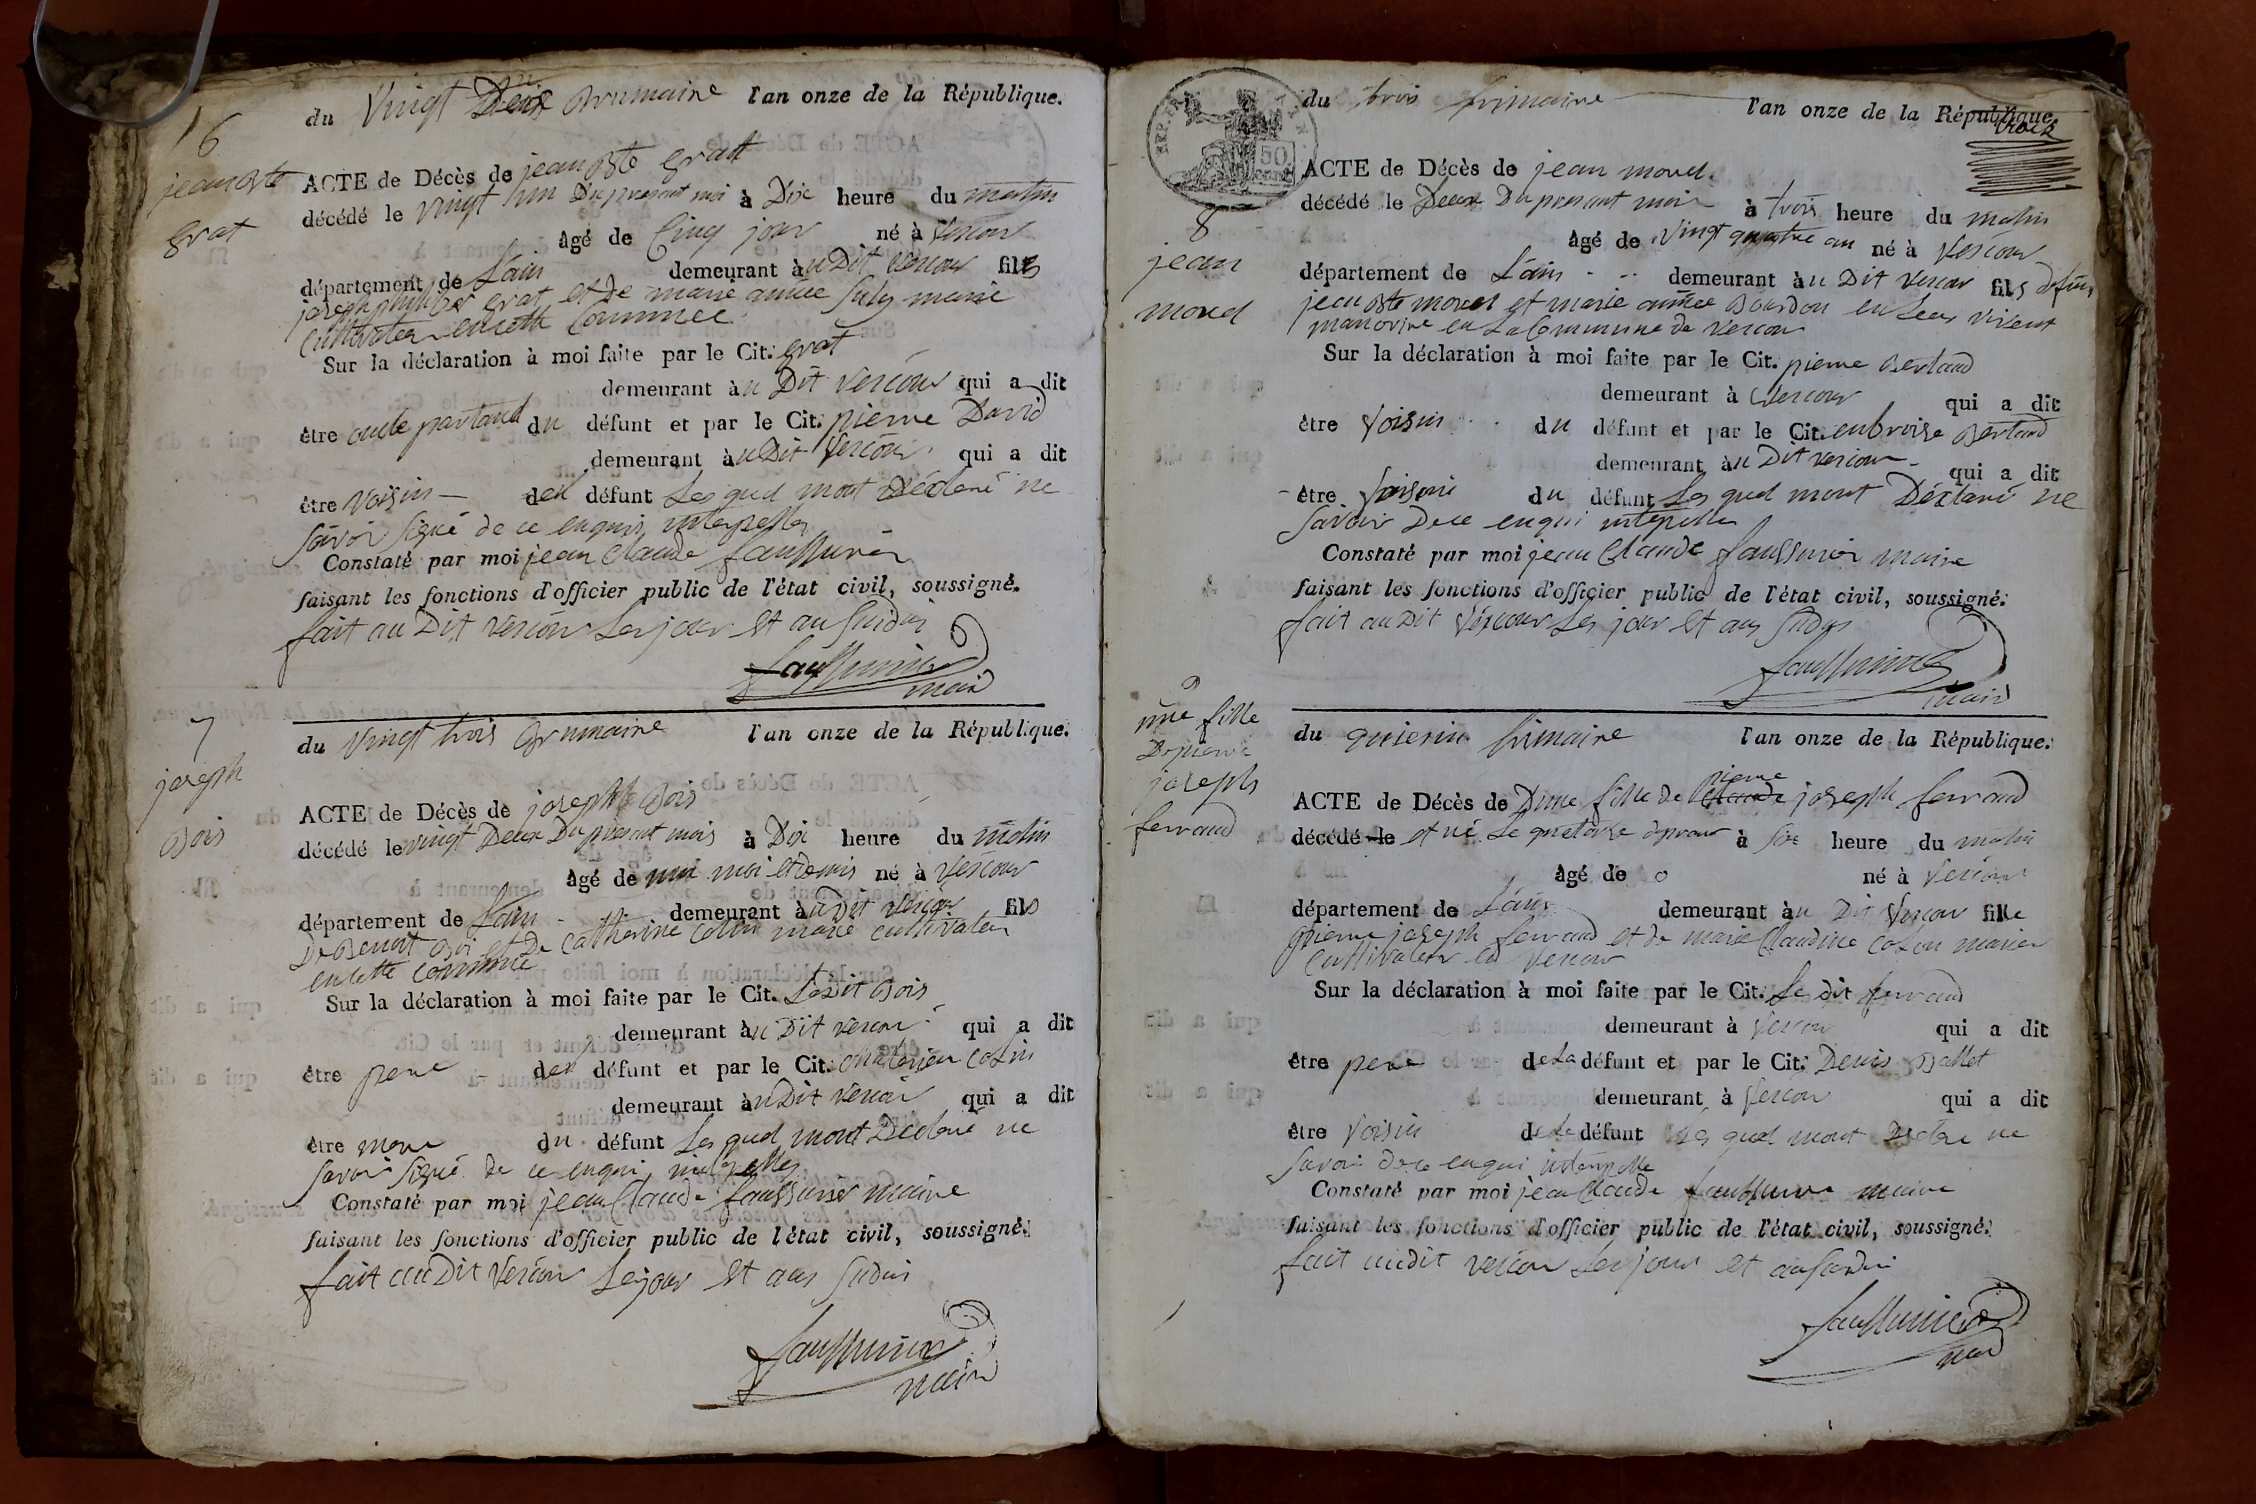 6
jean Bte
grat
du Vingt Deux Brumaire l'an onze de la République.
ACTE de Décès de jean Bte grat
décédé le vingt hun Du present moi à Dix heure du matin
âgé de Cinq jour né à Vescour
département de L'ain demeurant au Dit Vescour fils
joseph philiber grat et de marie aimée marie
Cultivater en cette Commune
Sur la déclaration à moi faite par le Cit. grat
demeurant au Dit Vescour qui a dit
être oncle du défunt et par le Cit. pierre David
demeurant au Dit Vescour qui a dit
être voisin de défunt Les quel mont Déclaré ne
savoir signé de ce enquis interpelles
Constaté par moi jean Claude faussurier
faisant les fonctions d'officier public de l'état civil, soussigné.
fait au Dit Vescour Les jour Et an susdis
faussurier
maire
7
joseph
Bois
du Vingt trois Brumaire l'an onze de la République.
ACTE de Décès de joseph Bois
décédé le vingt Deux Du present mois à Dix heure du matin
âgé de moi et demis né à Vescour
département de L'ain demeurant au Dit Vescour fils
De Benoit Boi et De Catherine Colin marié cultivateur
en cette commune
Sur la déclaration à moi faite par le Cit. Le Dit Bois
demeurant au Dit Vescour qui a dit
être pere de défunt et par le Cit. Colin
demeurant au Dit Vescour qui a dit
être du défunt Les quel mont Declaré ne
savoir signé de ce enqui interpelles
Constaté par moi jean Claude faussurier maire
faisant les fonctions d'officier public de l'état civil, soussigné.
fait au Dit Vescour Les jour Et an susdis
faussurier
maire
REP. FRA.
50
cent.
8
jean
morel
du trois frimaire l'an onze de la République.
ACTE de Décès de jean morel
décédé le Deux Du present mois à trois heure du matin
âgé de vingt quatre an né à Vescour
département de L'ain demeurant au Dit Vescour fils defunt
jean Bte morel et marie aimée Bourdon en Leur vivent
manovrie en La Commune de Vescour
Sur la déclaration à moi faite par le Cit. pierre Bertand
demeurant à Vescour qui a dit
être Voisin du défunt et par le Cit. enbroise Bertand
demeurant au Dit Vescour qui a dit
être Voisin du défunt Les quel mont Déclaré ne
savoir De ce enqui interpelles
Constaté par moi jean Claude faussurier maire
faisant les fonctions d'officier public de l'état civil, soussigné.
fait au Dit Vescour Les jour Et an sudis
faussurier
maire
9
une fille
De pierre
joseph
ferrand
du quiserin frimaire l'an onze de la République.
pierre
ACTE de Décès de Dune fille de Claude joseph ferrand
décédé le et né Le quatorse à Six heure du matin
âgé de 0 né à Vescour
département de L'ain demeurant au Dit Vescour fille
pierre joseph ferrand et de marie Claudine Colin marier
Cultivateur à Vescour
Sur la déclaration à moi faite par le Cit. Le dit ferrand
demeurant à Vescour qui a dit
être pere de La défunt et par le Cit. Denis Ballet
demeurant à Vescour qui a dit
être Voisin de La défunt Les quel mont Déclaré ne
savoir de ce enqui interpelle
Constaté par moi jean Claude faussurier maire
faisant les fonctions d'officier public de l'état civil, soussigné.
fait audit Vescour Les jour et an susdis
faussurier
maire